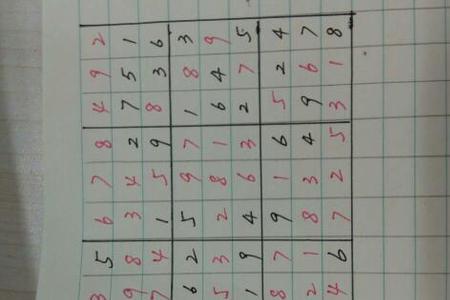 2 1 6 3 9 5 4 7 8
9 5 3 8 4 7 2 6 1
4 7 8 1 6 2 5 9 3
8 2 9 7 1 3 6 4 5
7 4 5 9 8 6 1 3 2
6 3 1 5 2 4 9 8 7
5 8 4 2 3 9 7 1 6
3 9 7 6 5 1 8 2 4